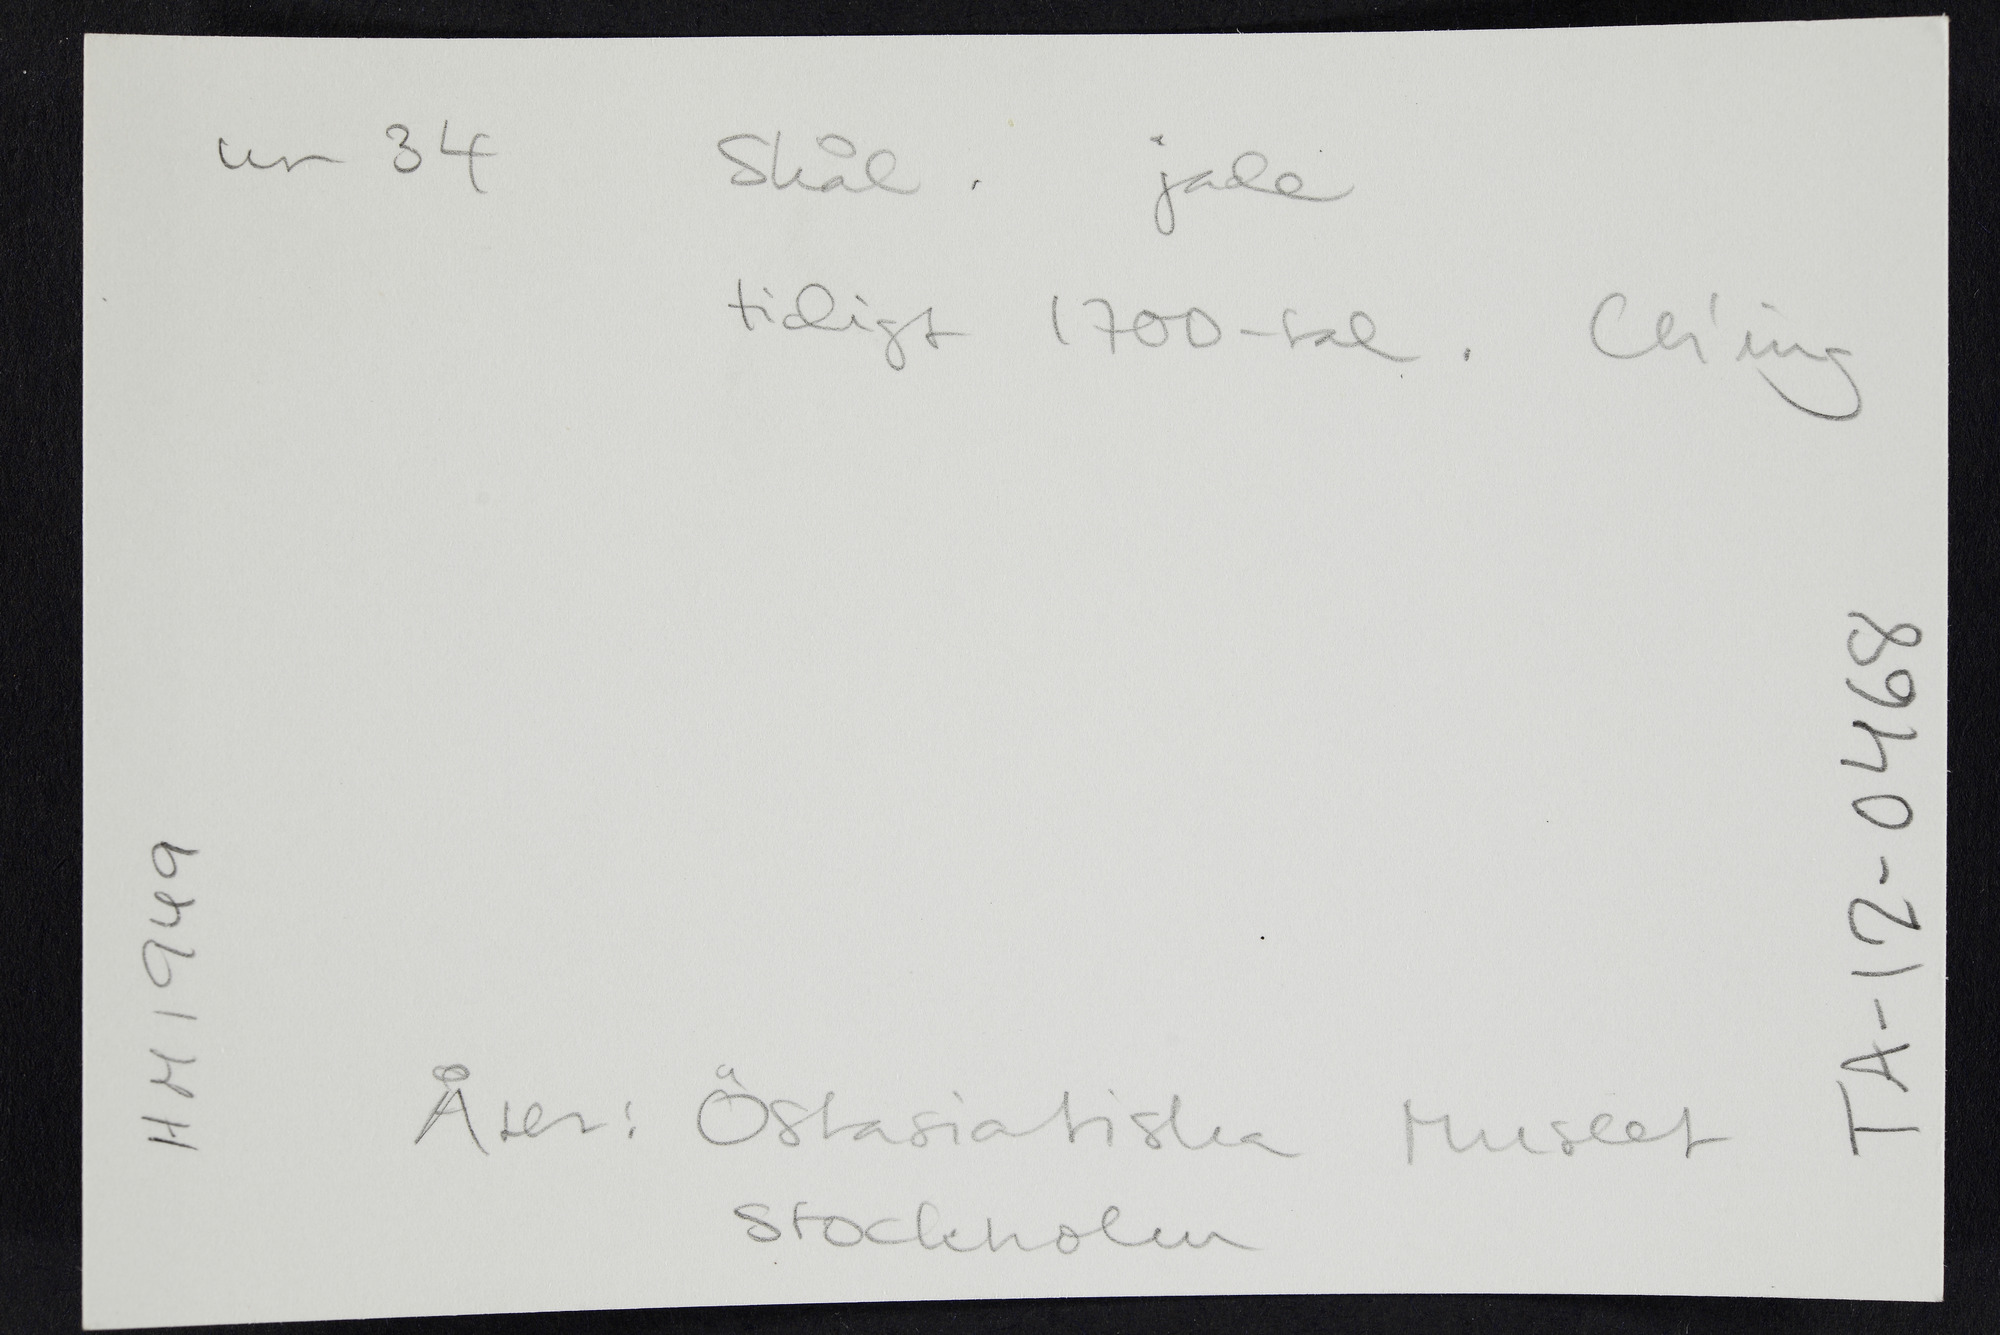 nr 34 Skål. jade
tidigt 1700-tal. Ch'ing
HM 1949
TA-12-0468
Äger: Östasiatiska Museet
Stockholm